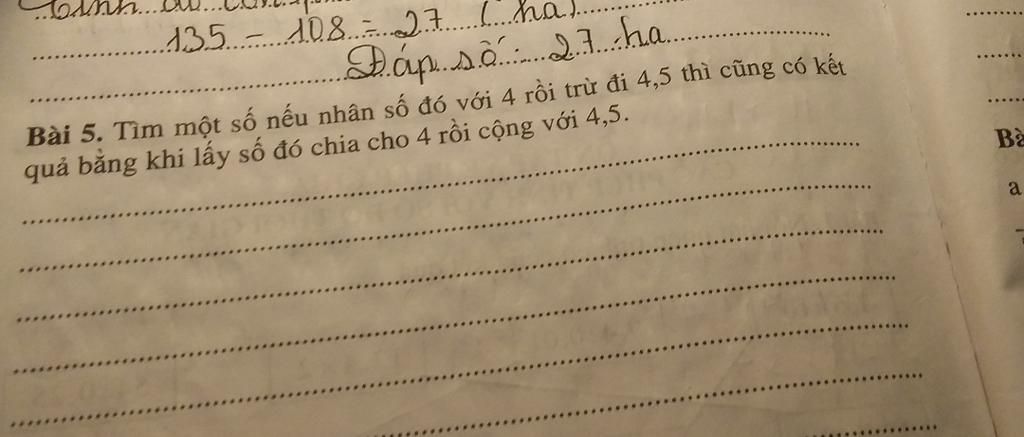 135 - 108 = 27 (ha)
Đáp số: 27 ha
Bài 5. Tìm một số nếu nhân số đó với 4 rồi trừ đi 4,5 thì cũng có kết
quả bằng khi lấy số đó chia cho 4 rồi cộng với 4,5.
a